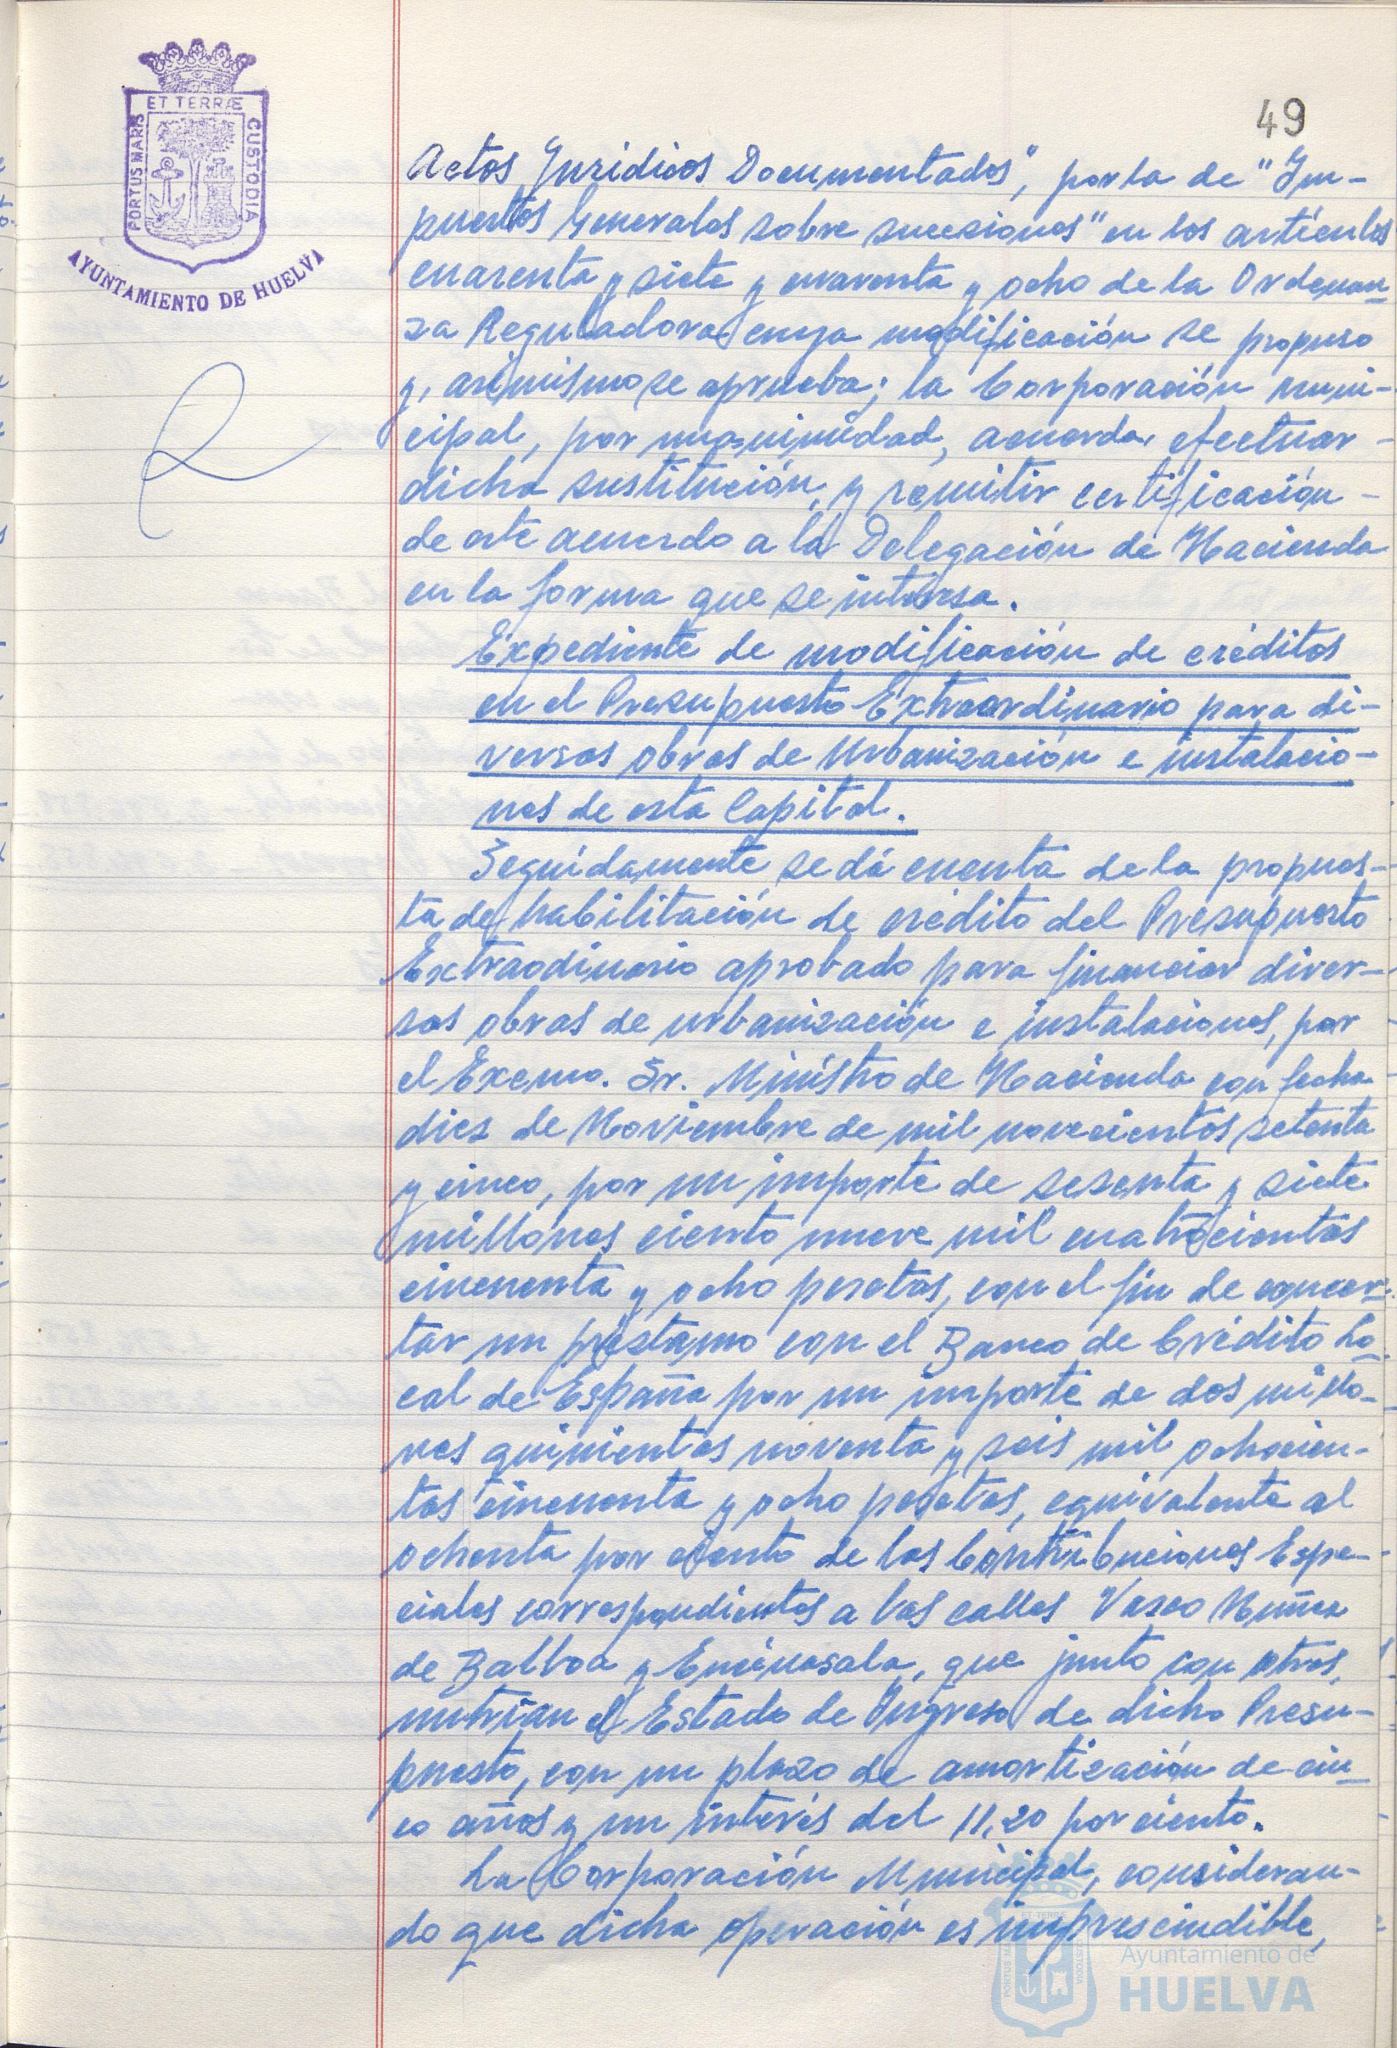 49
PORTUS MARIS
ET TERRÆ
CUSTODIA
AYUNTAMIENTO DE HUELVA
Actos Jurídicos Documentados", por la de "Im-
puestos Generales sobre sucesiones" en los artículos
cuarenta y siete y cuarenta y ocho de la Ordenan-
za Reguladora cuya modificación se propuso
y, asimismo se aprueba; la Corporación muni-
cipal, por unanimidad, acuerda efectuar
dicha sustitución, y remitir certificación
de este acuerdo a la Delegación de Hacienda
en la forma que se interesa.
Expediente de modificación de créditos
en el Presupuesto Extraordinario para di-
versas obras de Urbanización e instalacio-
nes de esta Capital.
Seguidamente se dá cuenta de la propues-
ta de habilitación de crédito del Presupuesto
Extraodinario aprobado para financiar diver-
sas obras de urbanización e instalaciones, por
el Excmo. Sr. Ministro de Hacienda con fecha
diez de Noviembre de mil novecientos setenta
y cinco, por un importe de sesenta y siete
millones ciento nueve mil cuatrocientas
cincuenta y ocho pesetas, con el fin de concer-
tar un préstamo con el Banco de Crédito Lo-
cal de España por un importe de dos millo-
nes quinientas noventa y seis mil ochocien-
tas cincuenta y ocho pesetas, equivalente al
ochenta por ciento de las Contribuciones Espe-
ciales correspondientes a las calles Vasco Núñez
de Balboa y Encinasola, que junto con otras,
nutrían el Estado de Ingreso de dicho Presu-
puesto, con un plazo de amortización de cin-
co años y un interés del 11,20 por ciento.
La Corporación Municipal, consideran-
do que dicha operación es imprescindible,
Ayuntamiento de
HUELVA